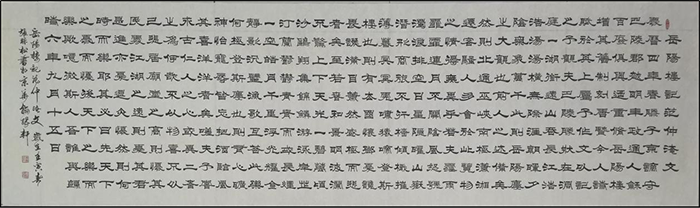 岳陽樓記范仲淹文
慶曆四年春滕子京謫守
巴陵郡越明年政通人和
百廢具興乃重修岳陽樓
增其舊制刻唐賢今人詩
賦于其上屬予作文以記
之予觀夫巴陵勝狀在洞
庭一湖銜遠山吞長江浩
浩湯湯橫無際涯朝暉夕
陰氣象萬千此則岳陽樓
之大觀也前人之述備矣
然則北通巫峽南極瀟湘
遷客騷人多會于此覽物
之情得無異乎若夫霪雨
霏霏連月不開陰風怒號
濁浪排空日星隱曜山岳
潛形商旅不行檣傾楫摧
薄暮冥冥虎嘯猿啼登斯
樓也則有去國懷鄉憂讒
畏譏滿目蕭然感極而悲
者矣至若春和景明波瀾
不驚上下天光一碧萬頃
沙鷗翔集錦鱗游泳岸芷
汀蘭郁郁青青而或長煙
一空皓月千里浮光躍金
靜影沉璧漁歌互答此樂
何極登斯樓也則有心曠
神怡寵辱偕忘把酒臨風
其喜洋洋者矣嗟夫予嘗
求古仁人之心或異二者
之為何哉不以物喜不以
己悲居廟堂之高則憂其
民處江湖之遠則憂其君
是進亦憂退亦憂然則何
時而樂耶其必曰先天下
之憂而憂後天下之樂而
樂歟噫微斯人吾誰與歸
時六年九月十五日
岳陽樓記范仲淹文